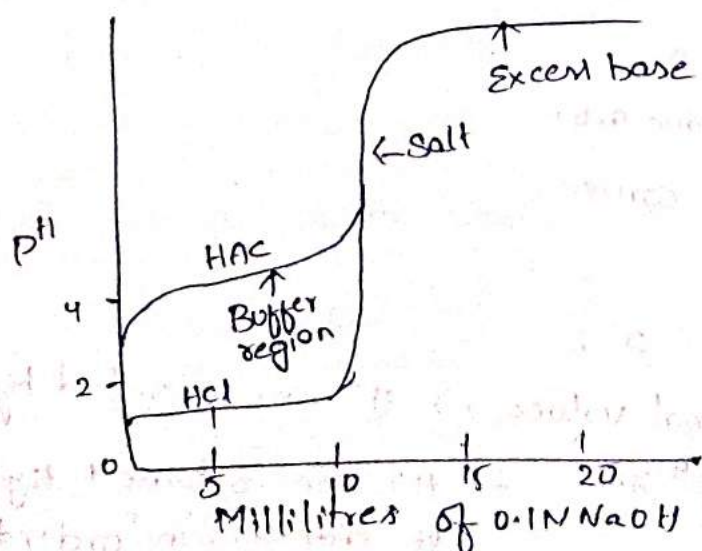 Excess base
← Salt
pH
HAC
4
Buffer
region
2
HCl
0
5
10
15
20
Millilitres of 0.1N NaOH